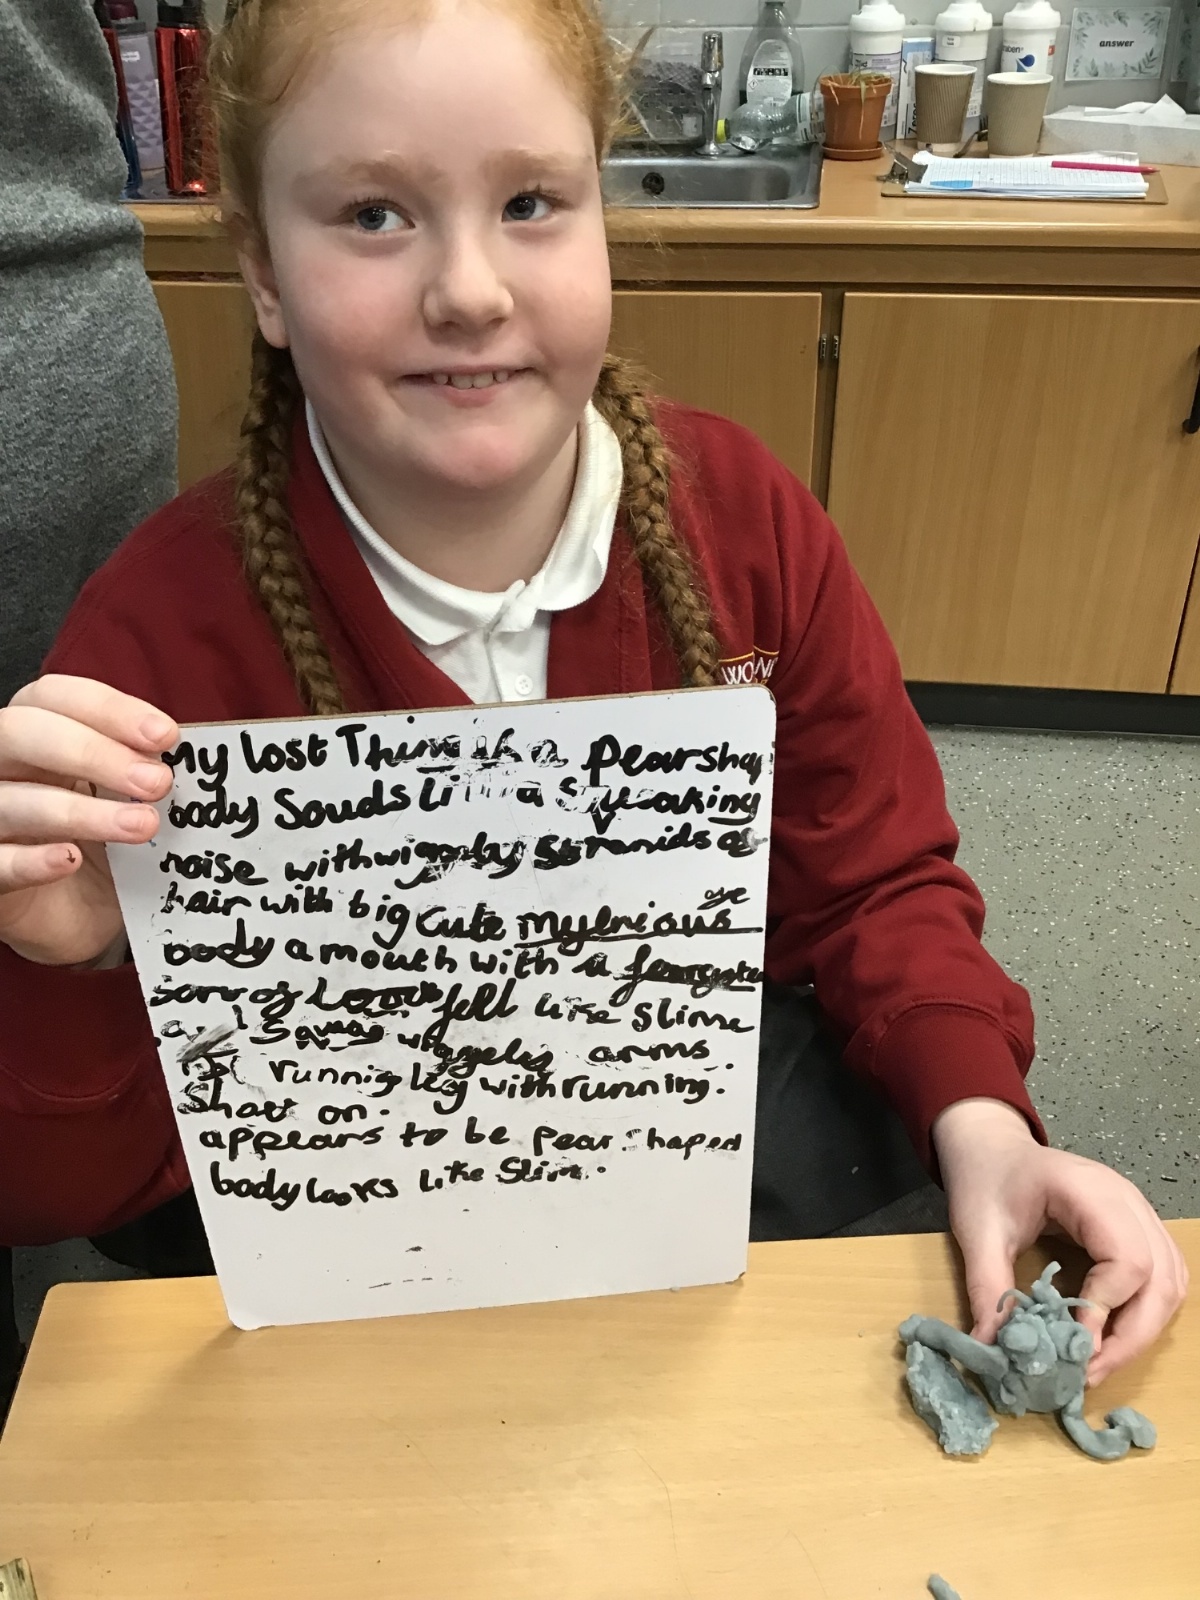 answer
My lost Thing is a Pearshap
body Souds Like a Squeaking
noise with wiggley Stranids of
hair with big cute myterious eye
body a mouth with a
sort of fell like Slime
wiggely arms
running leg with running.
Shat on.
appears to be pear shaped
body looks Like Slim.